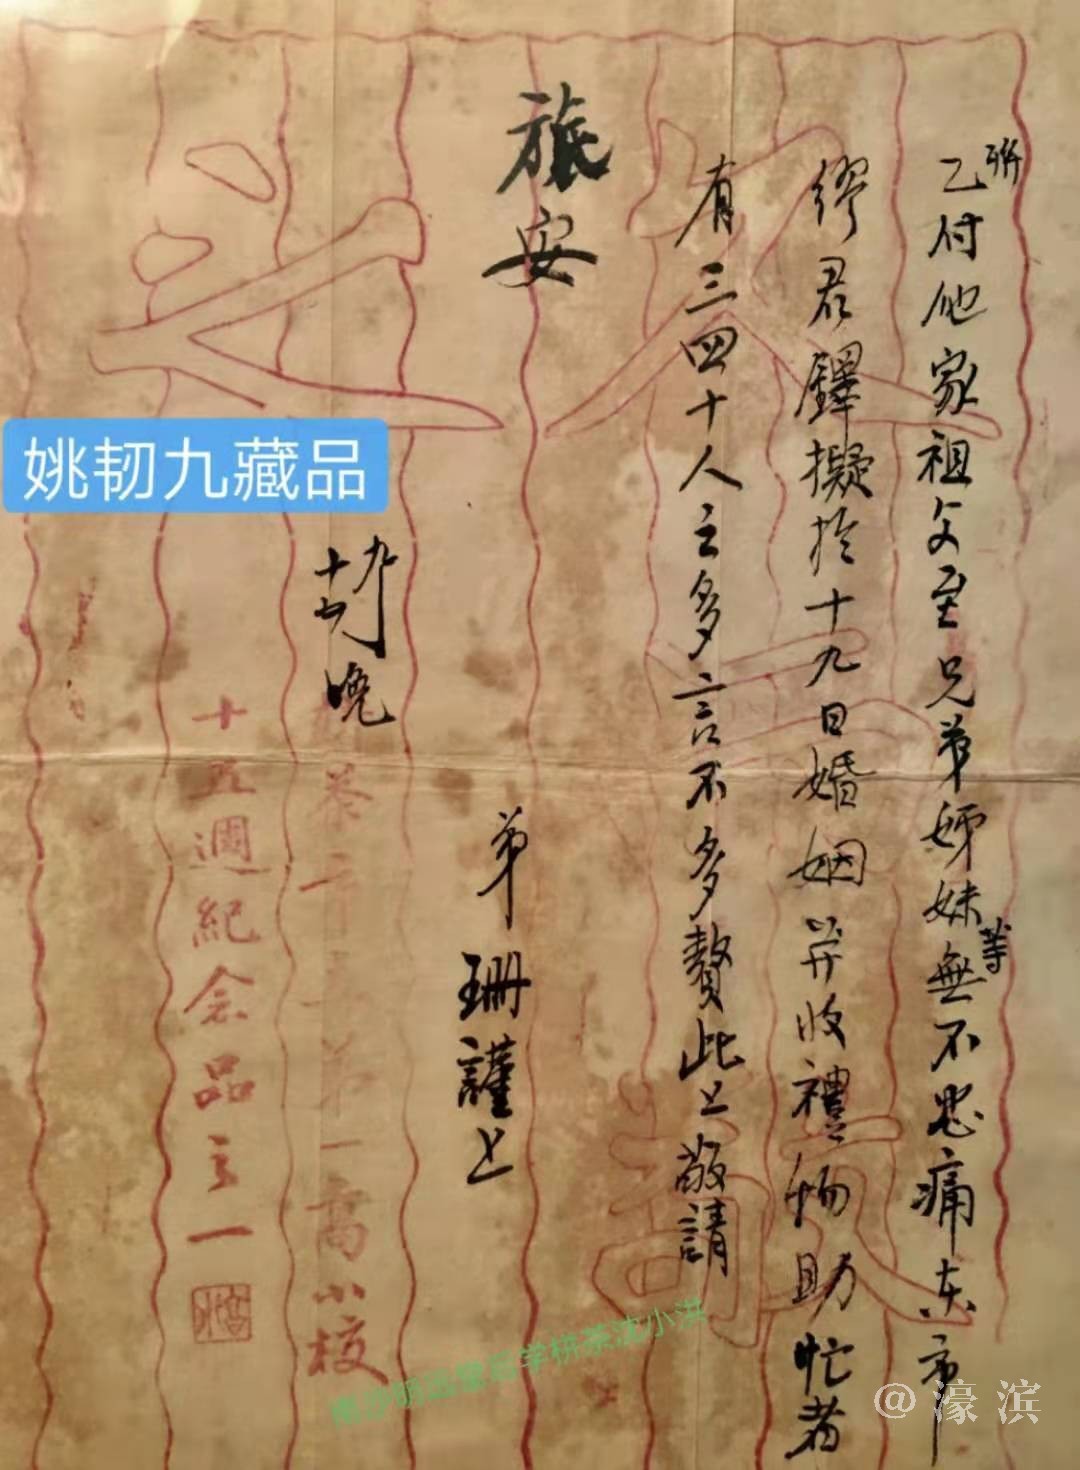 聯
乙付他家祖父至兄弟姊妹等無不悲痛东市
繆君鐸擬於十九日婚姻並收禮物助忙者
有三四十人之多言不多贅此上敬請
旅安
弟 珊謹上
九月
晚
第一高小校
十五週紀念品之一
姚韧九藏品
南沙明远堂后学栟茶沈小洪
@濠滨